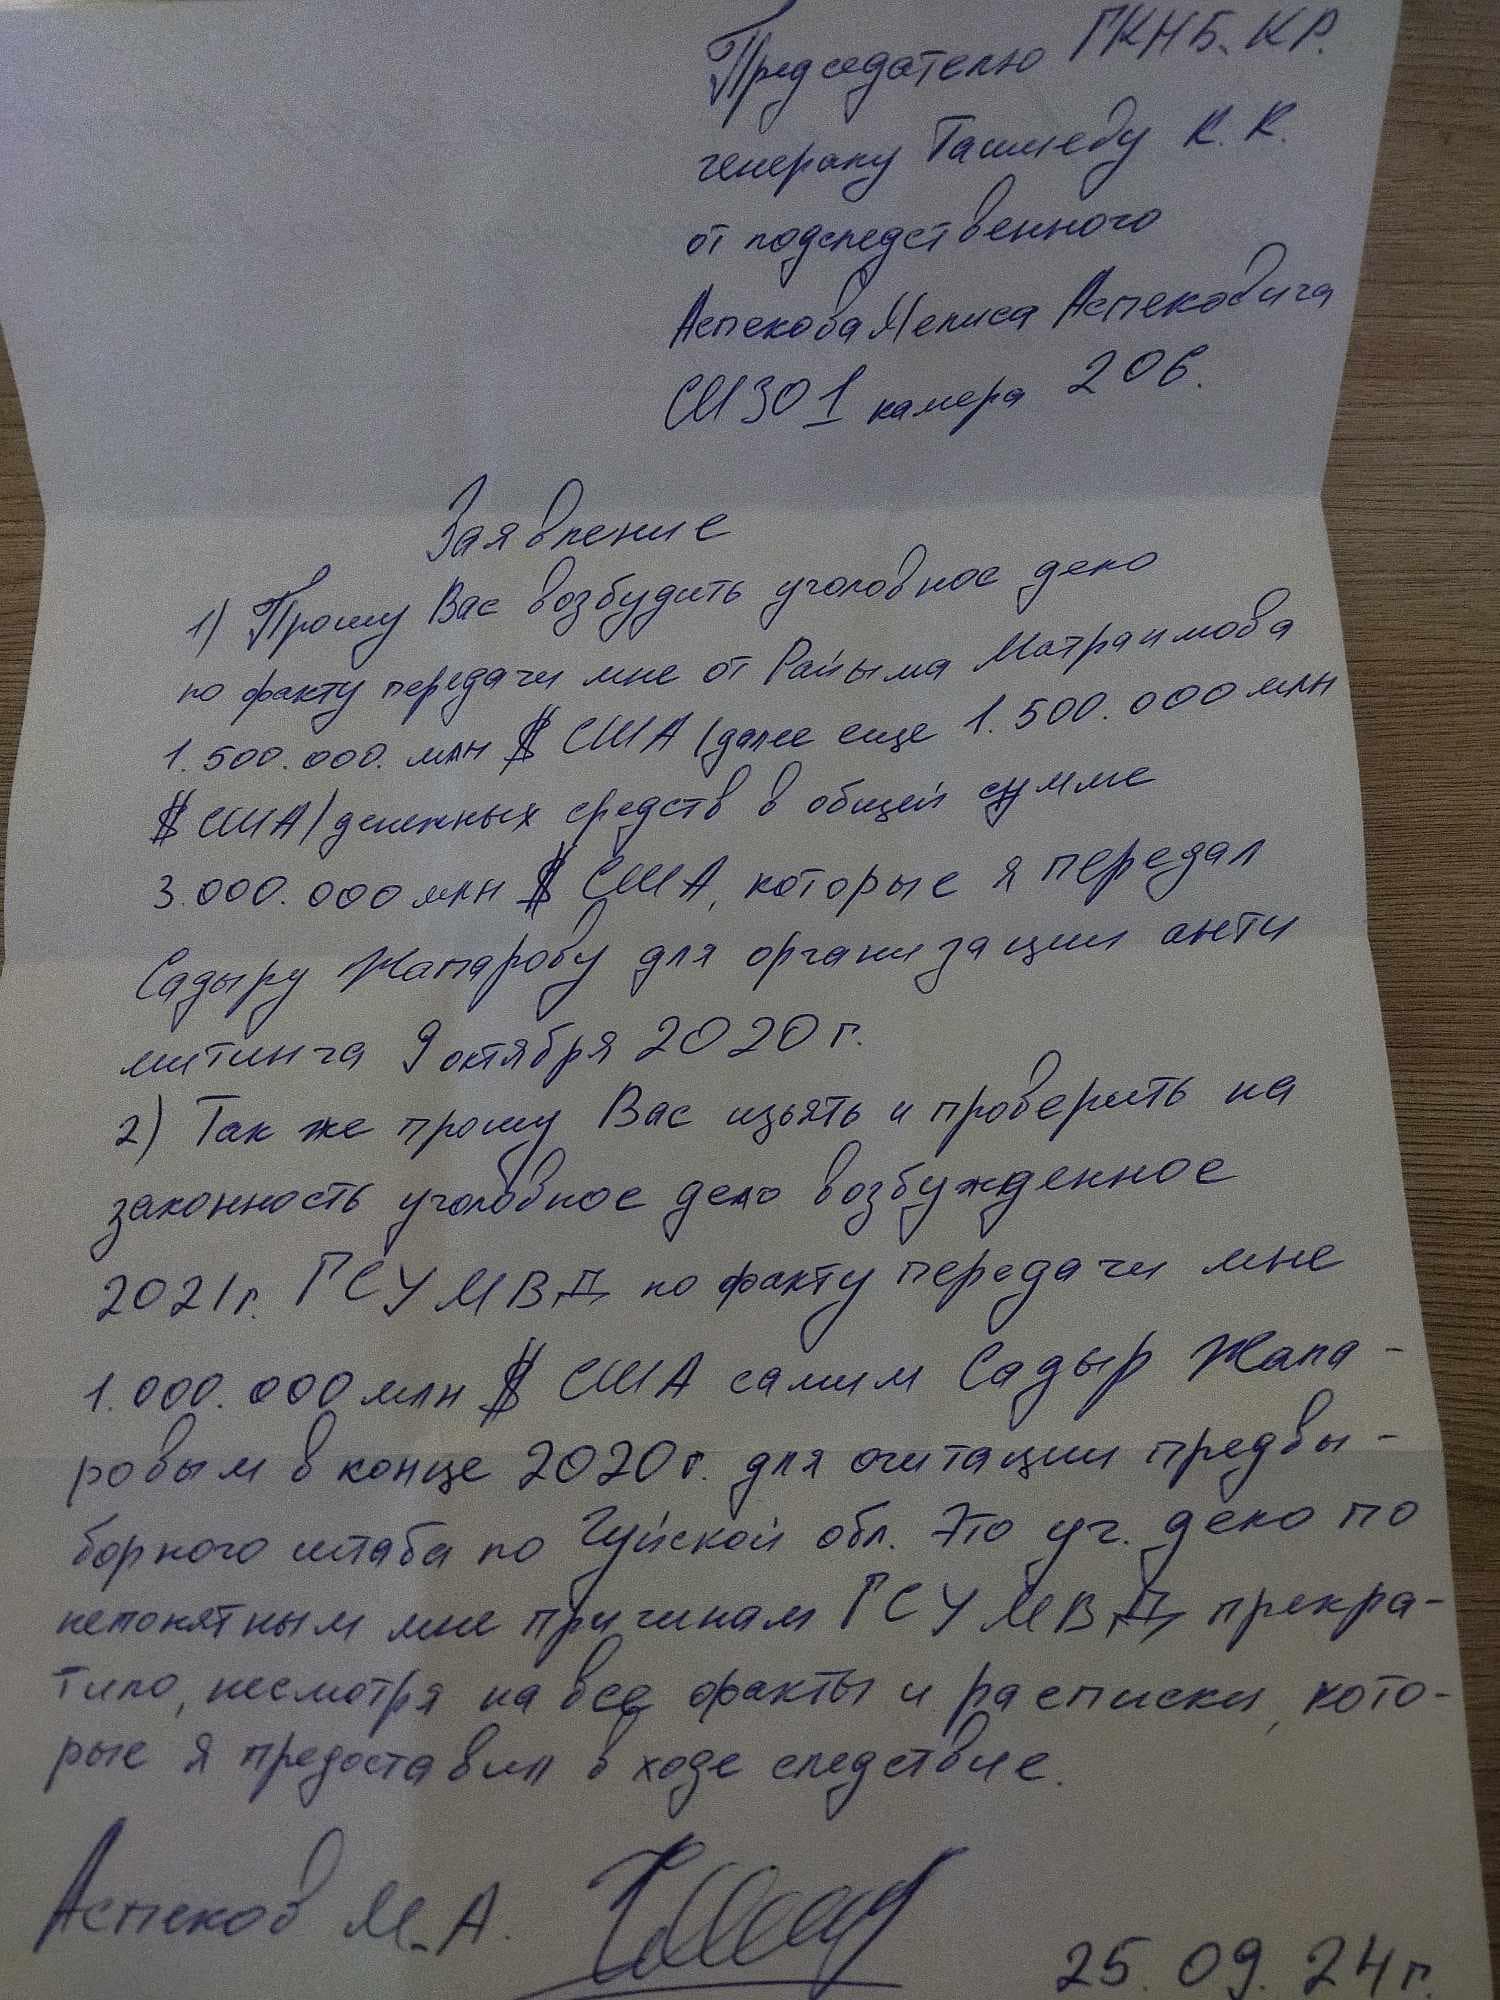 Председателю ГКНБ. КР.
генералу Ташиеву К. К.
от подследственного
Аспекова Мелиса Аспековича
СИЗО 1 камера 206.
Заявление
1) Прошу Вас возбудить уголовное дело
по факту передачи мне от Райыма Матраимова
1.500.000. млн $ США (далее еще 1.500.000 млн
$ США) денежных средств в общей сумме
3.000.000 млн $ США, которые я передал
Садыру Жапарову для организации анти
митинга 9 октября 2020 г.
2) Так же прошу Вас изьять и проверить на
законность уголовное дело возбужденное
2021г. ГСУ МВД по факту передачи мне
1.000.000 млн $ США самим Садыр Жапа-
ровым в конце 2020г. для агитации предвы-
борного штаба по Чуйской обл. Это уг. дело по
непонятным мне причинам ГСУ МВД прекра-
тило, несмотря на все факты и расписки, кото-
рые я предоставил в ходе следствие.
Аспеков М.А.
25.09.24г.